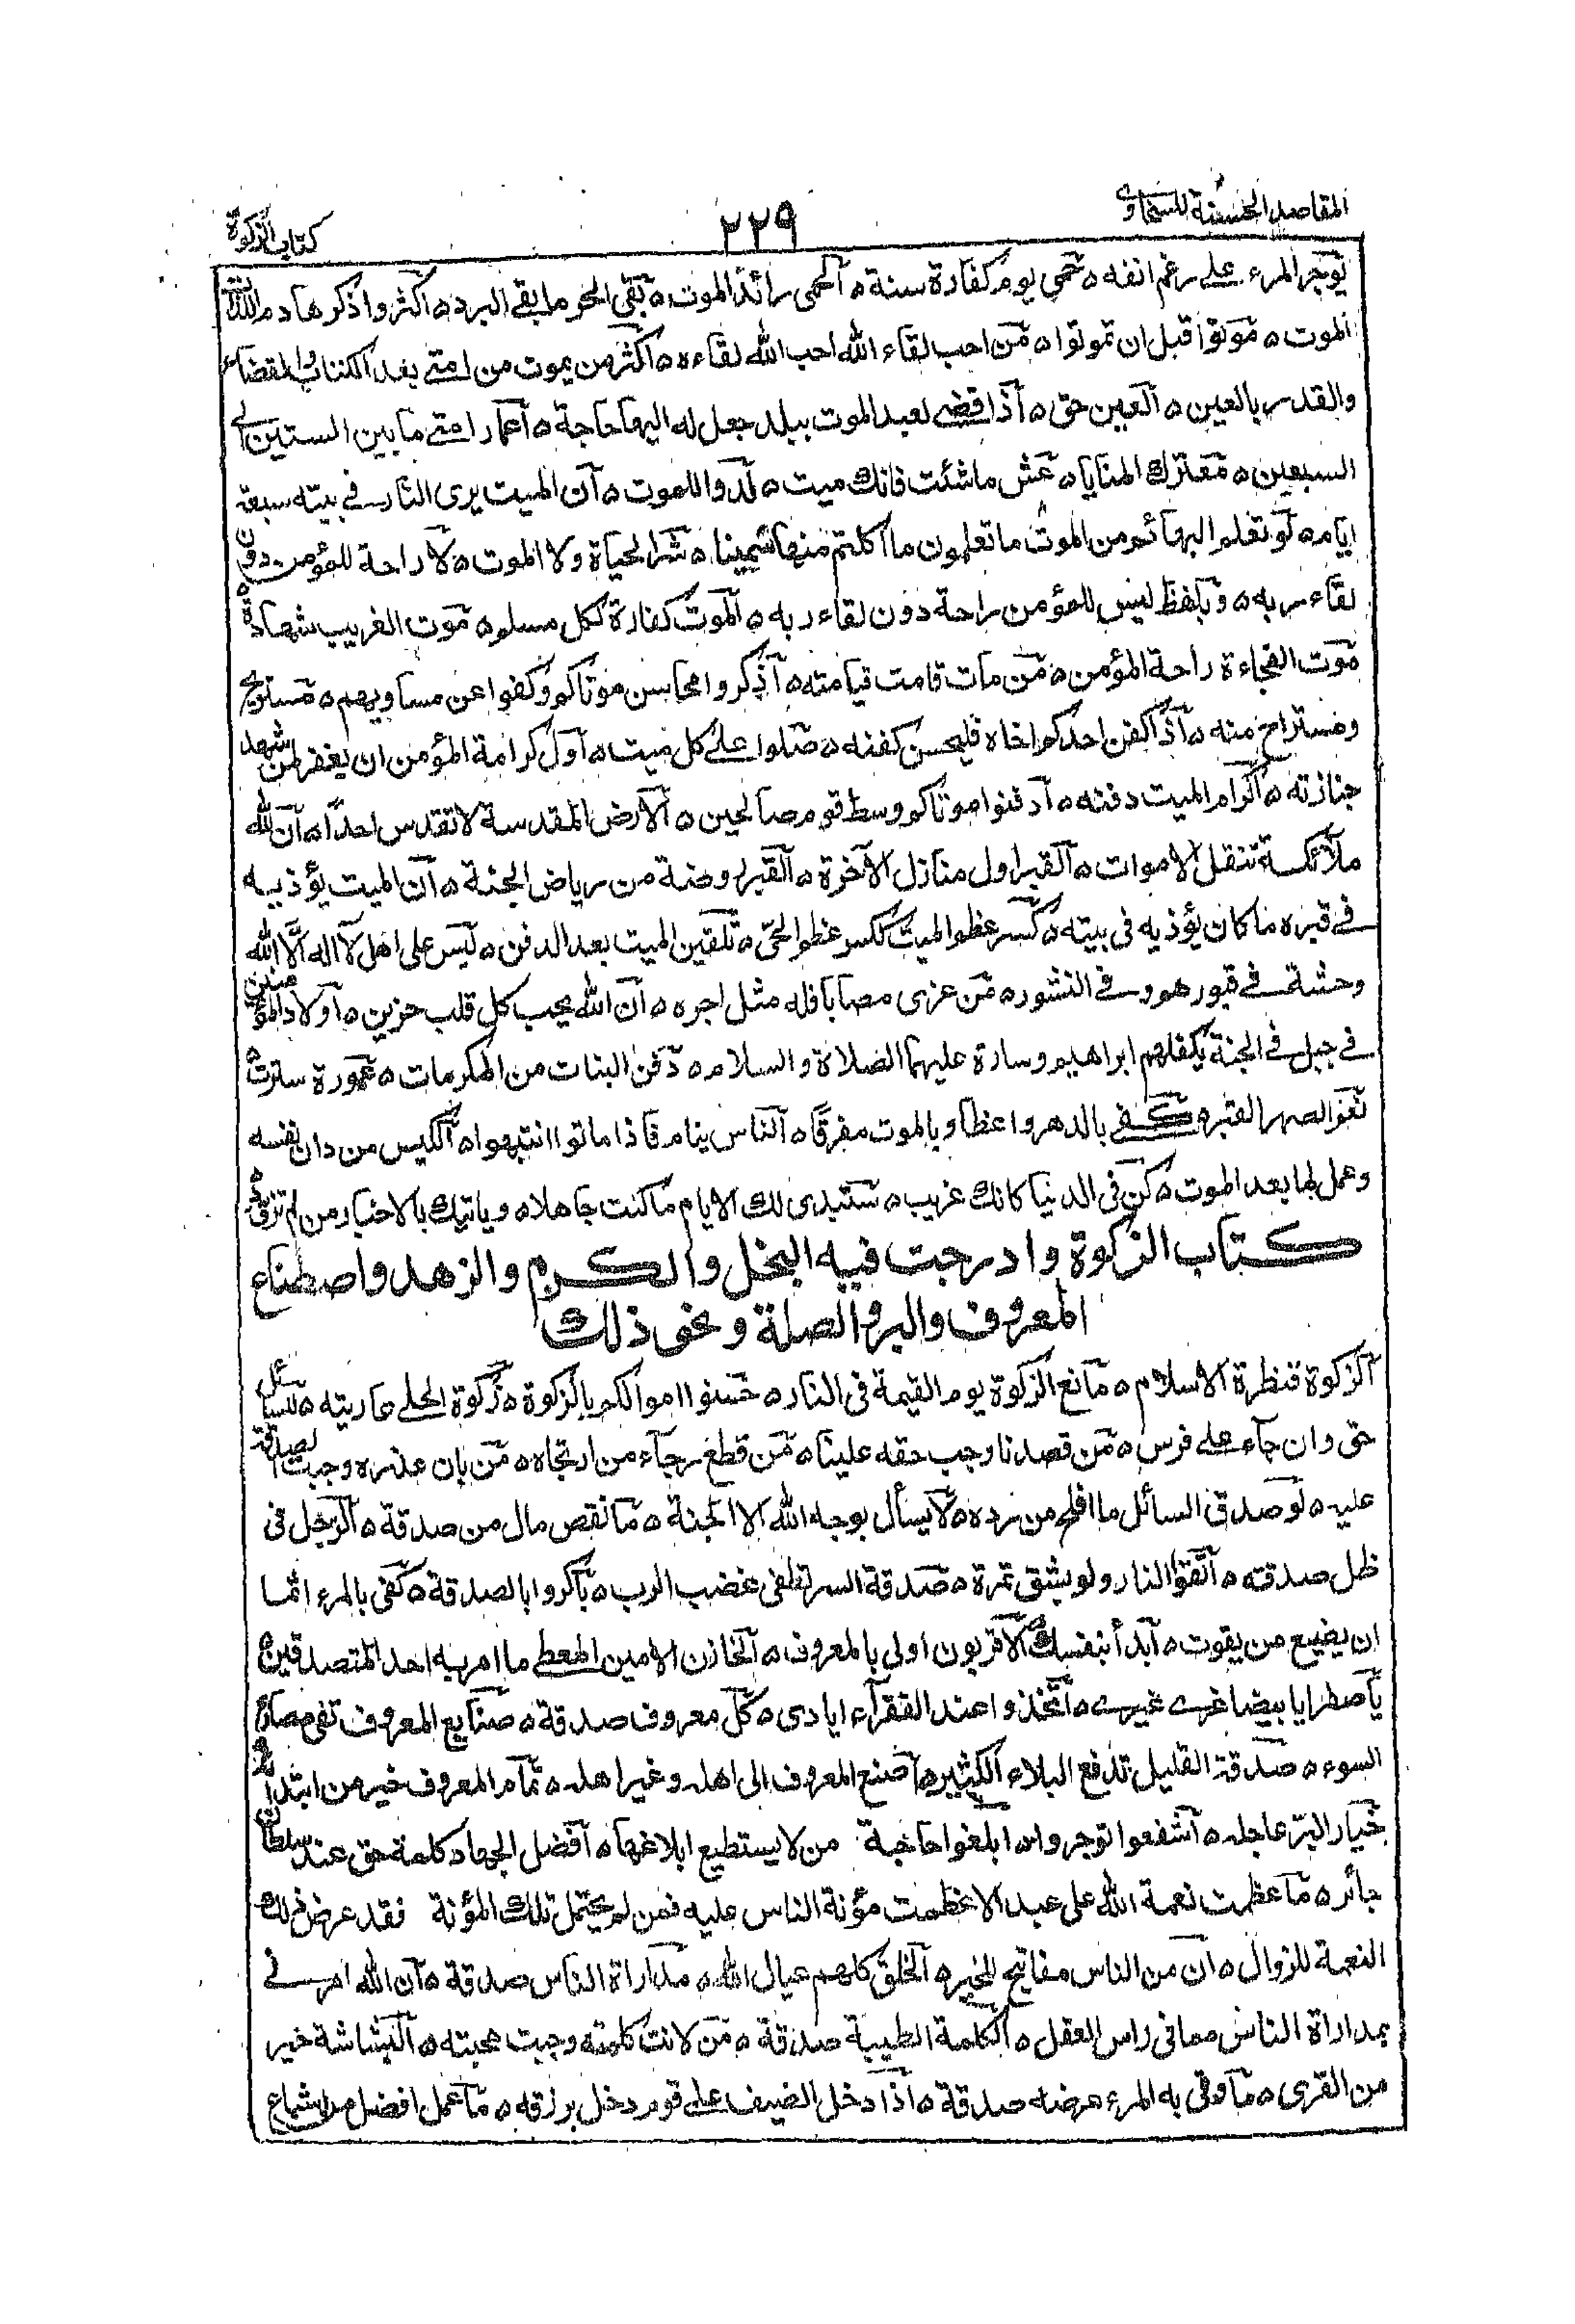 المقاصد الحسنة للسخاوى
٢٢٩
كتاب الزكوة
يؤجر المرء على رغم انفه ه حمى يوم كفارة سنة ه الحمى رائد الموت ه بقى الحر ما بقى البرد ه اكثروا ذكر هادم اللذات
الموت ه موتوا قبل ان تموتوا ه من احب لقاء الله احب الله لقاءه ه اكثر من يموت من امتى بعد الكتاب والقضاء
والقدر بالعين ه العين حق ه اذا قضى لعبد الموت ببلد جعل له اليها حاجة ه اعمار امتى ما بين الستين الى
السبعين ه معترك المنايا ه عش ما شئت فانك ميت ه لدوا للموت ه ان الميت يرى النار فى بيته سبعة
ايام ه لو تعلم البهائم من الموت ما تعلمون ما اكلتم منها سمينا ه شر الحياة ولا الموت ه لا راحة للمؤمن دون
لقاء ربه ه وبلفظ ليس للمؤمن راحة دون لقاء ربه ه الموت كفارة لكل مسلم ه موت الغريب شهادة ه
موت الفجاءة راحة المؤمن ه من مات قامت قيامته ه اذكروا محاسن موتاكم وكفوا عن مساويهم ه مستريح
ومستراح منه ه اذا كفن احدكم اخاه فليحسن كفنه ه صلوا على كل ميت ه اول كرامة المؤمن ان يغفر لمن شهد
جنازته ه اكرام الميت دفنه ه ادفنوا موتاكم وسط قوم صالحين ه الارض المقدسة لا تقدس احدا ه ان لله
ملائكة تنقل الاموات ه القبر اول منازل الآخرة ه القبر روضة من رياض الجنة ه ان الميت يؤذيه
فى قبره ما كان يؤذيه فى بيته ه كسر عظم الميت ككسر عظم الحى ه تلقين الميت بعد الدفن ه ليس على اهل لا اله الا الله
وحشة فى قبورهم و فى النشور ه من عزى مصابا فله مثل اجره ه ان الله يحب كل قلب حزين ه اولاد المؤمنين
فى جبل فى الجنة يكفلهم ابراهيم وسارة عليهما الصلاة والسلام ه دفن البنات من المكرمات ه عورة سترت ه
نعم الصهر القبر ه كفى بالدهر واعظا وبالموت مفرقا ه الناس نيام فاذا ماتوا انتبهوا ه الكيس من دان نفسه
وعمل لما بعد الموت ه كن فى الدنيا كانك غريب ه ستبدى لك الايام ما كنت جاهلا ه وياتيك بالاخبار من لم تزود ه
كتاب الزكوة وادرجت فيه البخل والكرم والزهد واصطناع
المعروف والبر والصلة و نحو ذلك
الزكوة قنطرة الاسلام ه مانع الزكوة يوم القيمة فى النار ه حصنوا اموالكم بالزكوة ه زكوة الحلى عاريته ه للسائل
حق وان جاء على فرس ه من قصدنا وجب حقه علينا ه من قطع رجاء من ارتجاه ه من بان عذره وجبت الصدقة
عليه ه لو صدق السائل ما افلح من رده ه لا يسأل بوجه الله الا الجنة ه ما نقص مال من صدقة ه الرجل فى
ظل صدقته ه اتقوا النار ولو بشق تمرة ه صدقة السر تطفى غضب الرب ه باكروا بالصدقة ه كفى بالمرء اثما
ان يضيع من يقوت ه ابدأ بنفسك ه الاقربون اولى بالمعروف ه الخازن الامين المعطى ما امر به احد المتصدقين ه
يا صفرا يا بيضا غرى غيرى ه اتخذوا عند الفقراء ايادى ه كل معروف صدقة ه صنايع المعروف تقى مصارع
السوء ه صدقة القليل تدفع البلاء الكثير ه اصنع المعروف الى اهله وغير اهله ه تمام المعروف خير من ابتدائه
خيار البر عاجله ه اشفعوا توجروا ه ابلغوا حاجة من لا يستطيع ابلاغها ه افضل الجهاد كلمة حق عند سلطان
جائر ه ما عظمت نعمة الله على عبد الا عظمت مؤنة الناس عليه فمن لم يحتمل تلك المؤنة فقد عرض تلك
النعمة للزوال ه ان من الناس مفاتيح للخير ه الخلق كلهم عيال الله ه مداراة الناس صدقة ه ان الله امرنى
بمداراة الناس ه راس العقل ه الكلمة الطيبة صدقة ه من لانت كلمته وجبت محبته ه البشاشة خير
من القرى ه ما وقى به المرء عرضه صدقة ه اذا دخل الضيف على قوم دخل برزقه ه ما عمل افضل من اشباع